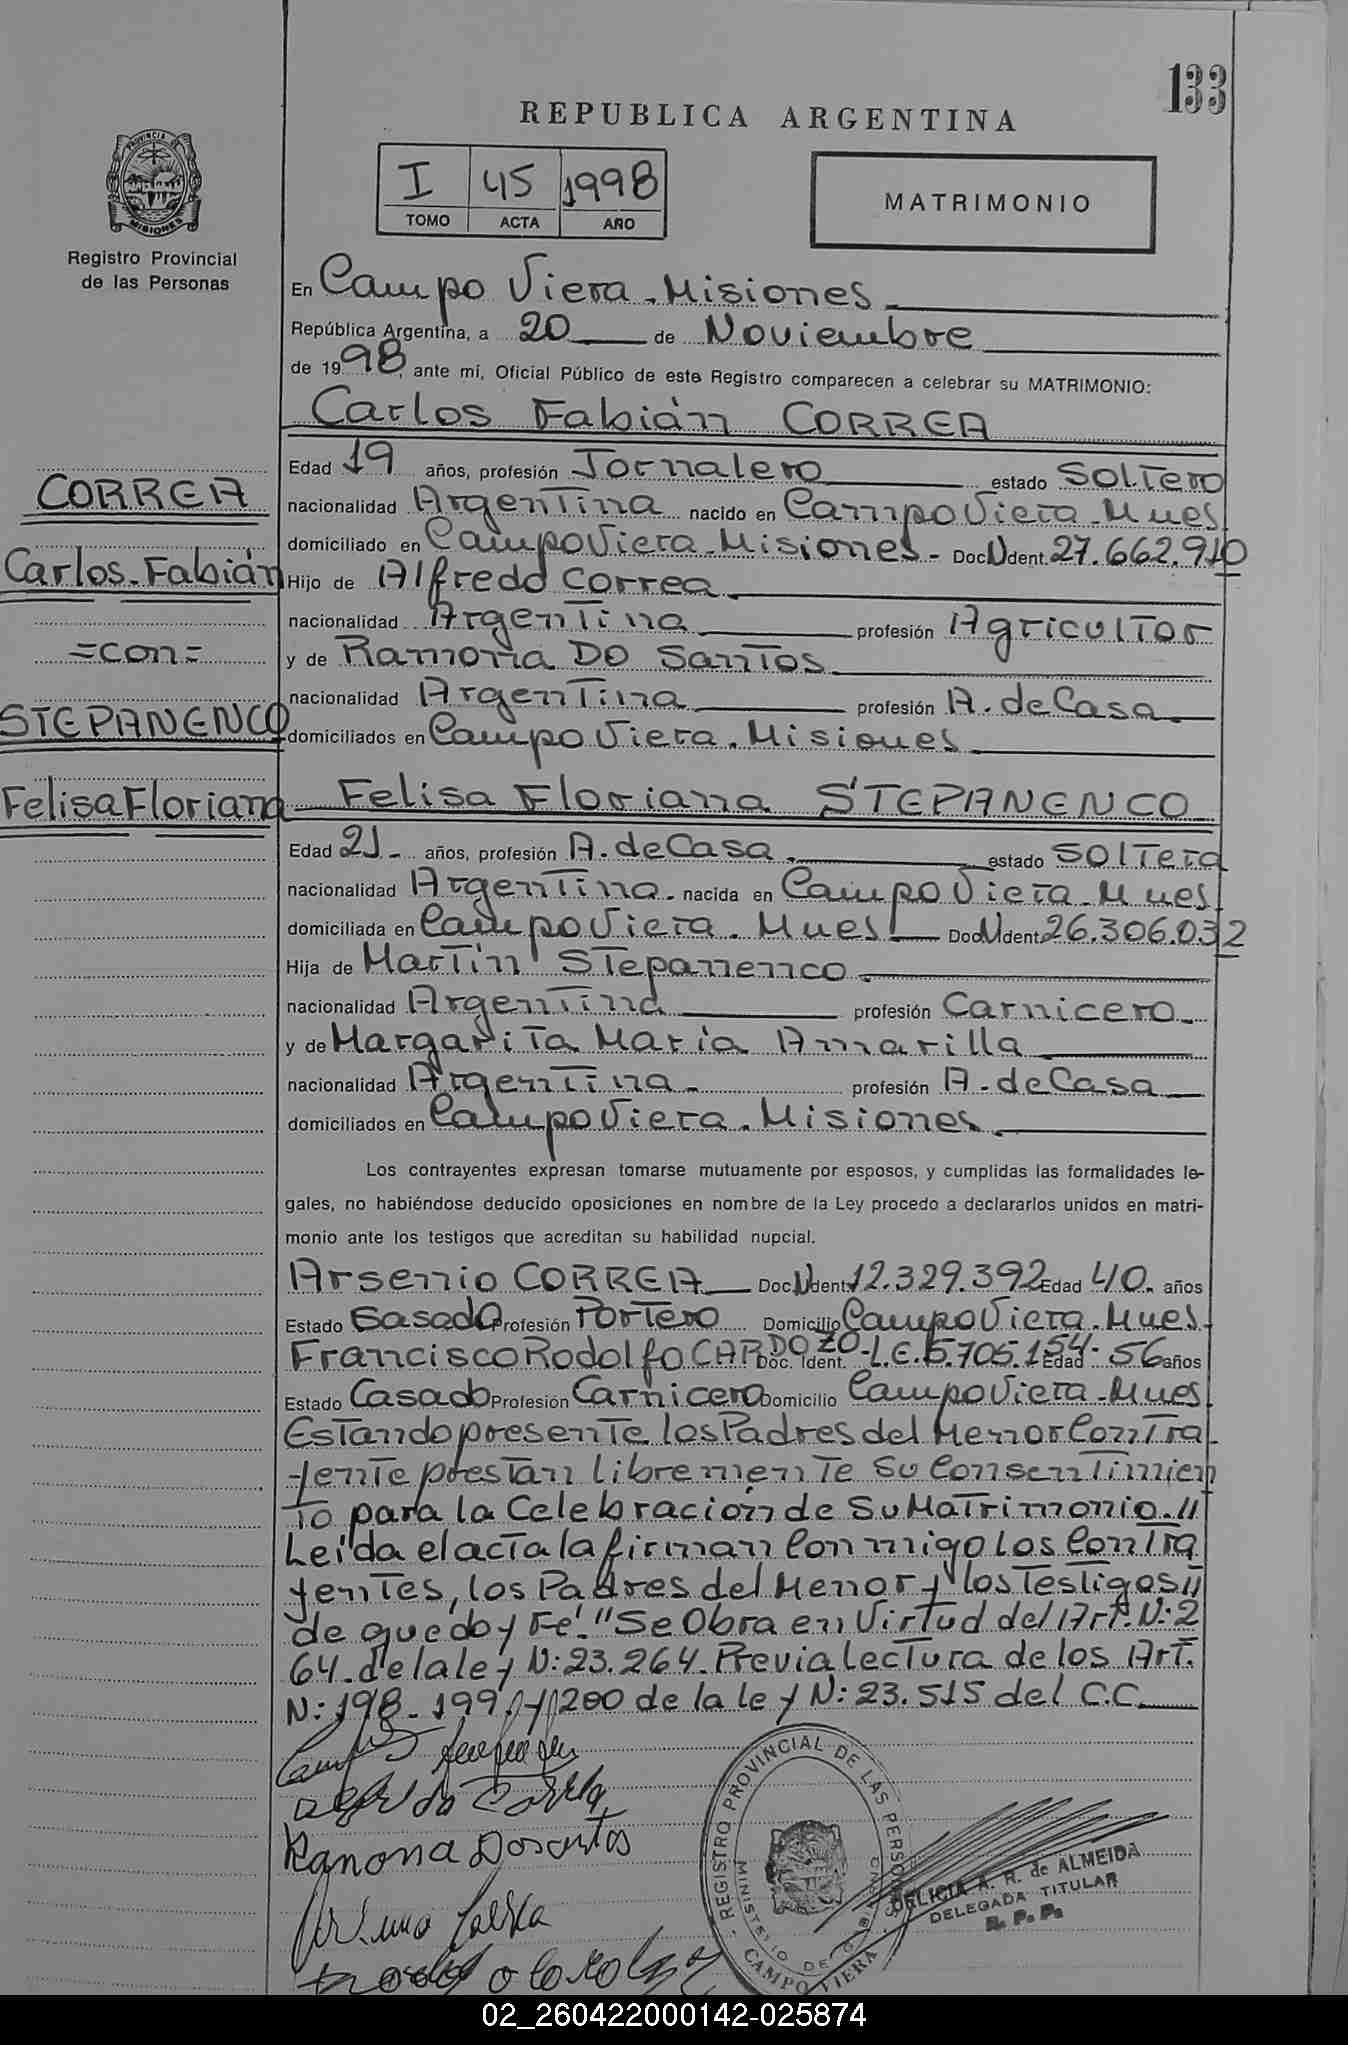 133
REPUBLICA ARGENTINA
I 45 1998
TOMO ACTA AÑO
MATRIMONIO
PROVINCIA DE MISIONES
Registro Provincial
de las Personas
En Campo Viera. Misiones
República Argentina, a 20 de Noviembre
de 1998, ante mí, Oficial Público de este Registro comparecen a celebrar su MATRIMONIO:
Carlos Fabián CORREA
Edad 19 años, profesión Jornalero estado Soltero
nacionalidad Argentina nacido en Campo Viera. Mnes
domiciliado en Campo Viera. Misiones - Doc N Ident. 27.662.910
Hijo de Alfredo Correa
nacionalidad Argentina profesión Agricultor
y de Ramona DO Santos
nacionalidad Argentina profesión A. de Casa
domiciliados en Campo Viera. Misiones
CORREA
Carlos Fabián
=con=
STEPANENCO
Felisa Floriana
Felisa Floriana STEPANENCO
Edad 21 años, profesión A. de Casa. estado Soltera
nacionalidad Argentina. nacida en Campo Viera. Mnes
domiciliada en Campo Viera. Mnes Doc N Ident 26.306.032
Hija de Martín Stepanenco
nacionalidad Argentina profesión Carnicero
y de Margarita María Amarilla
nacionalidad Argentina profesión A. de Casa
domiciliados en Campo Viera. Misiones
Los contrayentes expresan tomarse mutuamente por esposos, y cumplidas las formalidades le-
gales, no habiéndose deducido oposiciones en nombre de la Ley procedo a declararlos unidos en matri-
monio ante los testigos que acreditan su habilidad nupcial.
Arsenio CORREA Doc N Ident 12.329.392 Edad 40. años
Estado Casado Profesión Portero Domicilio Campo Viera. Mnes
Francisco Rodolfo CARDOZO Doc. Ident. L.E. 5.705.154 Edad 56 años
Estado Casado Profesión Carnicero Domicilio Campo Viera. Mnes
Estando presente los Padres del Menor Contra
yente prestan libremente su Consentimien
to para la Celebración de Su Matrimonio.//
Leída el acta la firman Conmigo los Contra
yentes, los Padres del Menor y los Testigos//
de que doy Fé. "Se Obra en Virtud del Art. N: 2
64. de la ley N: 23.264. Previa lectura de los Art.
N: 198 - 199 y 200 de la ley N: 23.515 del C.C.
Alfredo Correa
Ramona Dosantos
REGISTRO PROVINCIAL DE LAS PERSONAS
MINISTERIO DE GOBIERNO
CAMPO VIERA
DELICIA A. R. de ALMEIDA
DELEGADA TITULAR
R. P. P.
02_260422000142-025874